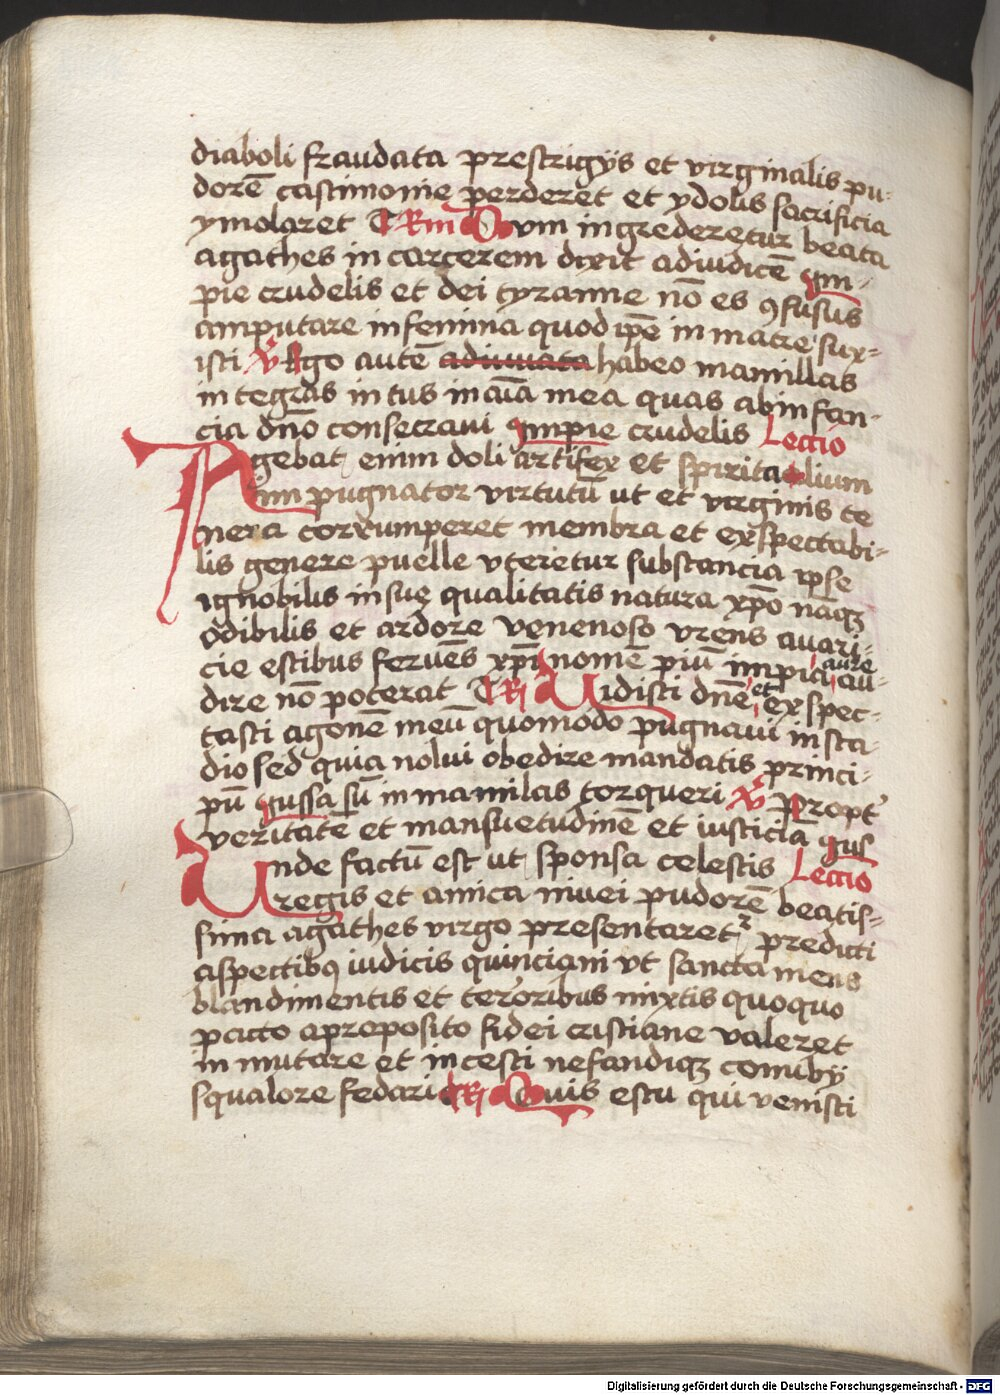 diaboli fraudata prestrigijs et virginalis pu-
dorē castimonie perderet et ydolis sacrificia
ymolaret Rm Dum ingrederetur beata
agathes in carcerem dixit ad iudicē im-
pie crudelis et dei tyranne nō es ꝯfusus
amputare in femina quod ip̄e in matre sux-
isti V̄ Ego autē adiuuata habeo mamillas
integras intus in aīa mea quas ab infan-
cia dn̄o consecraui impie crudelis Lectio
Agebat enim doli artifex et spiritalium
inpugnator virtutū ut et virginis te
nera corrumperet membra et exspectabi-
lis genere puelle vteretur substancia ipse
ignobilis in sue qualitatis natura xp̄o nāqꝫ
odibilis et ardore venenoso vrens auari-
cie estibus feruēs xp̄i nomē piū impia aure au-
dire nō poterat R Vidisti dn̄e et exspec-
tasti agonē meū quomodo pugnaui in sta-
dio sed quia nolui obedire mandatis princi-
pū iussa sū in mamillas torqueri V̄ Propt᾽
veritatē et mansuetudinē et iusticiā ius
Unde factū est ut sponsa celestis Lectio
regis et amica niuei pudorē beatis-
sima agathes virgo presentaretᷣ predicti
aspectibꝯ iudicis quinciani vt sancta mens
blandimentis et teroribus mixtis quoquo
pacto a preposito fidei cristiane valeret
inmutare et incesti nefandiqꝫ conubij
squalore fedari R Quis es tu qui venisti
Digitalisierung gefördert durch die Deutsche Forschungsgemeinschaft - DFG